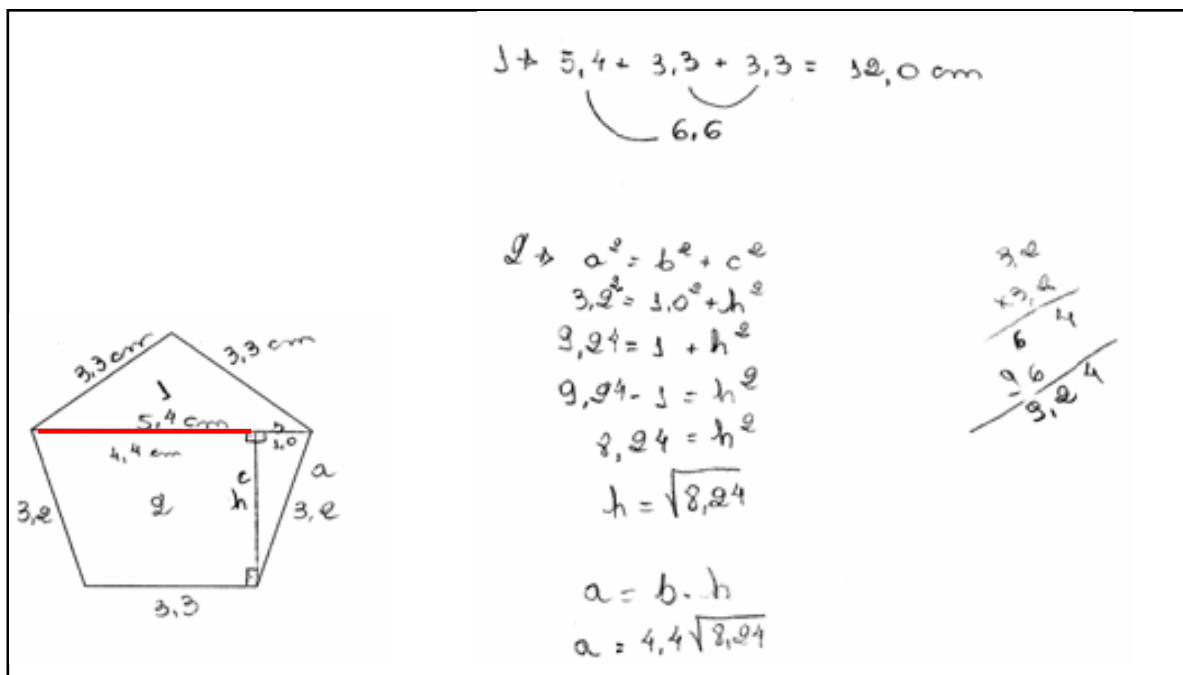 1→ 5,4 + 3,3 + 3,3 = 12,0 cm
6,6
2→ a² = b² + c²
3,2² = 1,0² + h²
9,24 = 1 + h²
9,24 - 1 = h²
8,24 = h²
h = √8,24
a = b . h
a = 4,4√8,24
3,2
x3,2
6 4
96
9,24
3,3 cm
3,3 cm
1
5,4 cm
1,0
4,4 cm
c
a
h
2
3,2
3,2
3,3